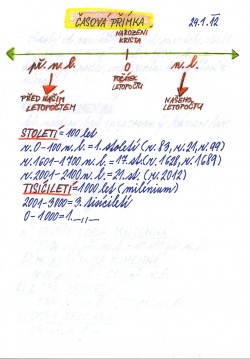 ČASOVÁ PŘÍMKA 24.1.12
NAROZENÍ
KRISTA
př. n. l. 0 n. l.
POČÁTEK
LETOPOČTU
PŘED NAŠÍM
LETOPOČTEM
NAŠEHO
LETOPOČTU
STOLETÍ = 100 let
r. 0-100 n. l. = 1. století (r. 83, r. 21, r. 99)
r. 1601-1700 n. l. = 17. st. (r. 1628, r. 1689)
r. 2001-2100 n. l. = 21. st. (r. 2012)
TISÍCILETÍ = 1000 let (milenium)
2001-3000 = 3. tisíciletí
0-1000 = 1. -„-